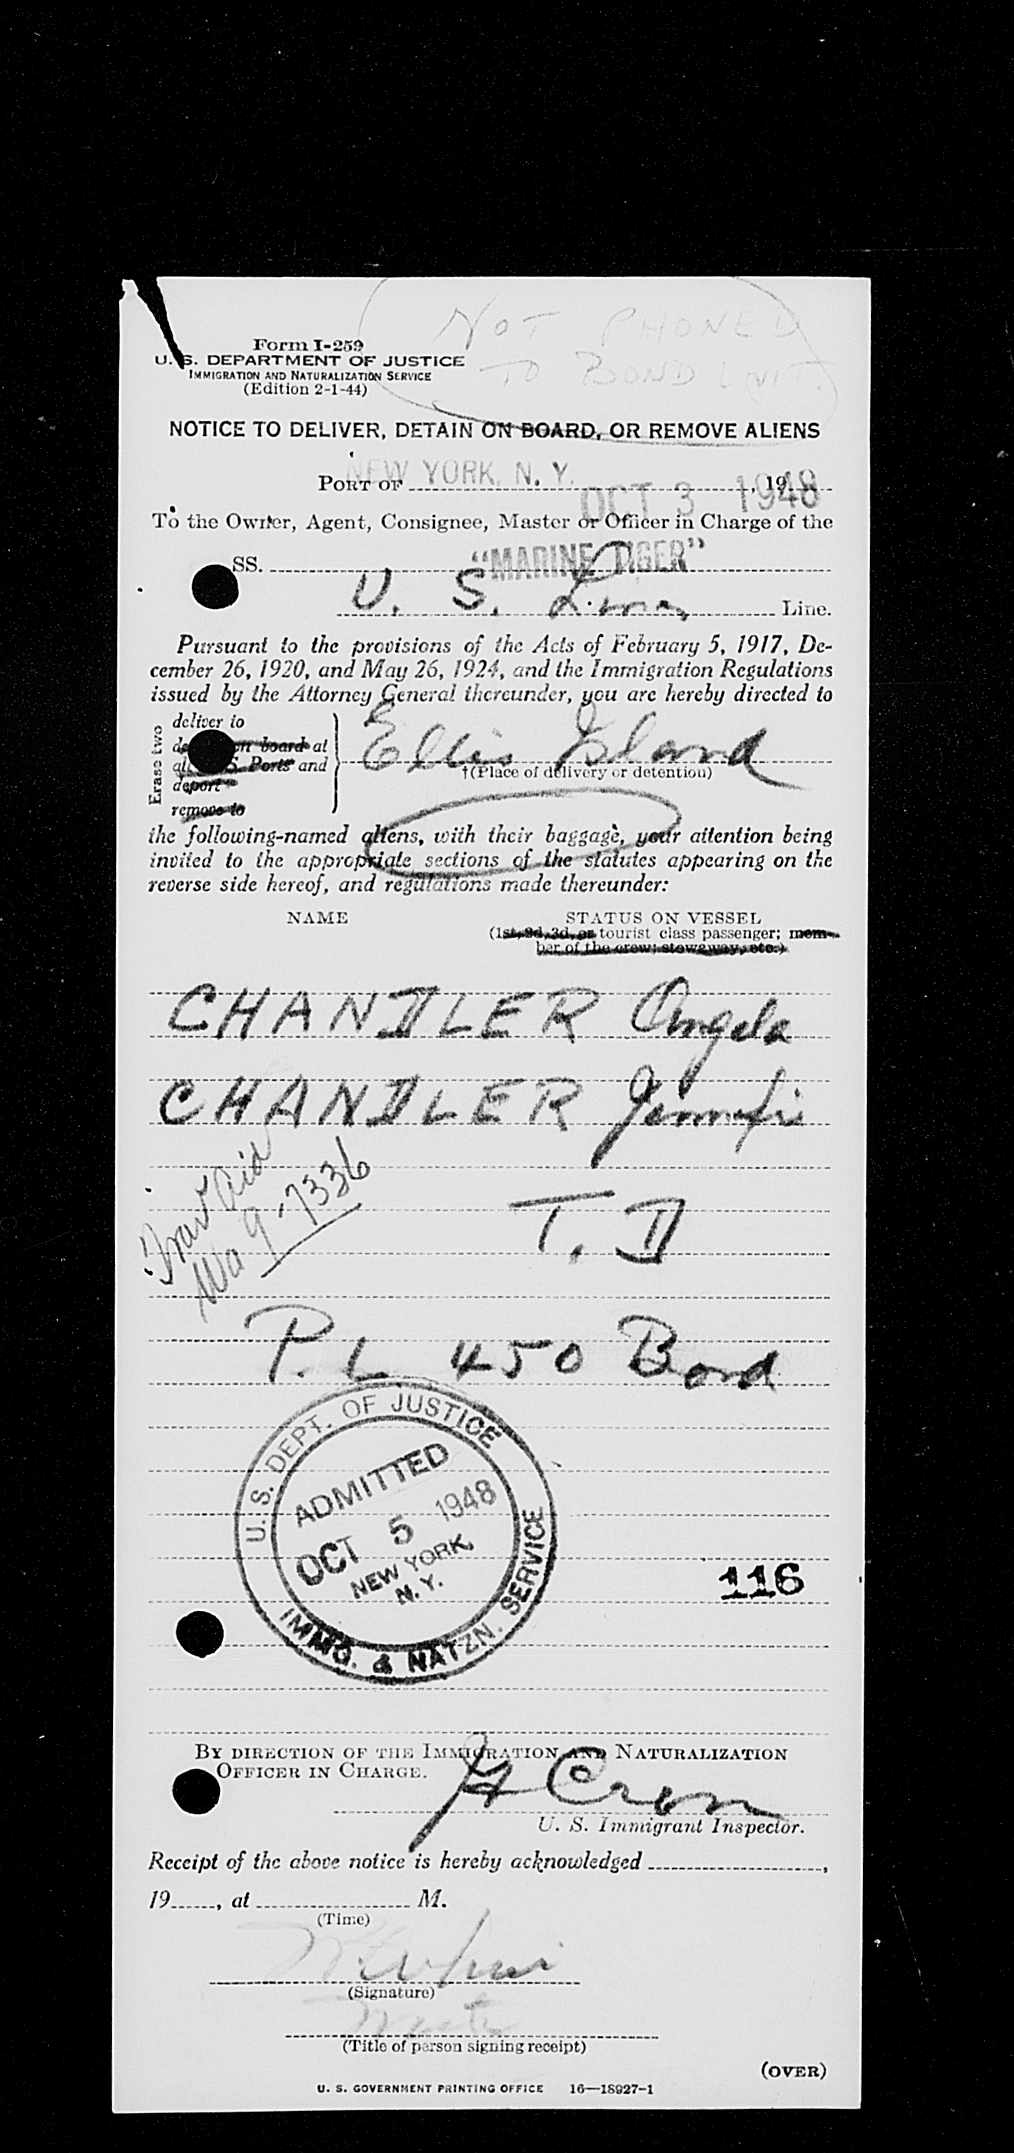 NOT PHONED
TO BOND UNIT.
Form I-259
U. S. DEPARTMENT OF JUSTICE
IMMIGRATION AND NATURALIZATION SERVICE
(Edition 2-1-44)
NOTICE TO DELIVER, DETAIN ON BOARD, OR REMOVE ALIENS
PORT OF NEW YORK, N. Y. OCT 3 1948, 19
To the Owner, Agent, Consignee, Master or Officer in Charge of the
SS. "MARINE TIGER"
U. S. Lines Line.
Pursuant to the provisions of the Acts of February 5, 1917, De-
cember 26, 1920, and May 26, 1924, and the Immigration Regulations
issued by the Attorney General thereunder, you are hereby directed to
Erase two
deliver to
on board at
S. Ports and
deport
remove to
Ellis Island
†(Place of delivery or detention)
the following-named aliens, with their baggage, your attention being
invited to the appropriate sections of the statutes appearing on the
reverse side hereof, and regulations made thereunder:
NAME STATUS ON VESSEL
(1st, 2d, 3d, or tourist class passenger; mem-
ber of the crew; stowaway, etc.)
CHANDLER Angela
CHANDLER Jennifer
Trav Aid
Wa 9-7336
T. D
P. L 450 Bond
U. S. DEPT. OF JUSTICE
ADMITTED
OCT 5 1948
NEW YORK,
N. Y.
IMMG. & NATZN. SERVICE
116
BY DIRECTION OF THE IMMIGRATION AND NATURALIZATION
OFFICER IN CHARGE.
H Cron
U. S. Immigrant Inspector.
Receipt of the above notice is hereby acknowledged ,
19 , at M.
(Time)
(Signature)
(Title of person signing receipt)
(OVER)
U. S. GOVERNMENT PRINTING OFFICE 16—18927-1